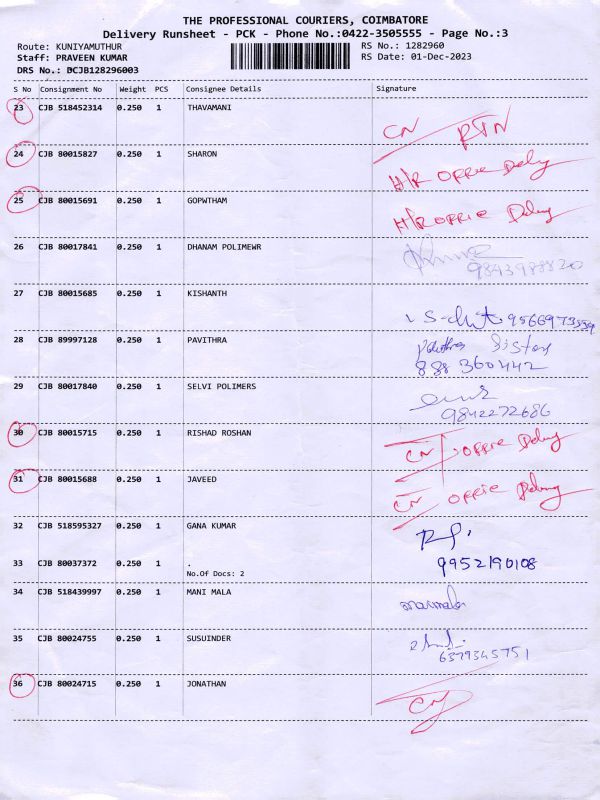 THE PROFESSIONAL COURIERS, COIMBATORE
Delivery Runsheet - PCK - Phone No.:0422-3505555 - Page No.:3
Route: KUNIYAMUTHUR RS No.: 1282960
Staff: PRAVEEN KUMAR RS Date: 01-Dec-2023
DRS No.: DCJB128296003
S No Consignment No Weight PCS Consignee Details Signature
23 CJB 518452314 0.250 1 THAVAMANI
CN RTN
24 CJB 80015827 0.250 1 SHARON
H/R OFFIE Delvy
25 CJB 80015691 0.250 1 GOPWTHAM
H/R OFFIE Delvy
26 CJB 80017841 0.250 1 DHANAM POLIMEWR
9843988820
27 CJB 80015685 0.250 1 KISHANTH
9566973559
28 CJB 89997128 0.250 1 PAVITHRA
Pavithra Sister
888 360442
29 CJB 80017840 0.250 1 SELVI POLIMERS
9842272686
30 CJB 80015715 0.250 1 RISHAD ROSHAN
CN OFFIE Delvy
31 CJB 80015688 0.250 1 JAVEED
CN OFFIE Delvy
32 CJB 518595327 0.250 1 GANA KUMAR
33 CJB 80037372 0.250 1 .
9952190108
No.Of Docs: 2
34 CJB 518439997 0.250 1 MANI MALA
35 CJB 80024755 0.250 1 SUSUINDER
6379345751
36 CJB 80024715 0.250 1 JONATHAN
CN